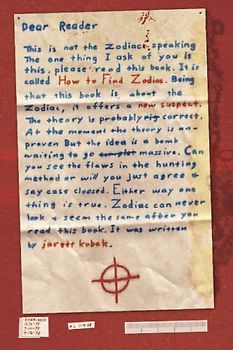 Dear Reader
This is not the Zodiac speaking
The one thing I ask of you is
this, please read this book. It is
called How to Find Zodiac. Being
that this book is about the
Zodiac, it offers a new suspect.
The theory is probably correct.
At the moment the theory is un-
proven But the idea is a bomb
waiting to go massive. Can
you see the flaws in the hunting
method or will you just agree &
say case cloosed. Either way one
thing is true. Zodiac can never
look & seem the same after you
read this book. It was written
by jarett kobek.